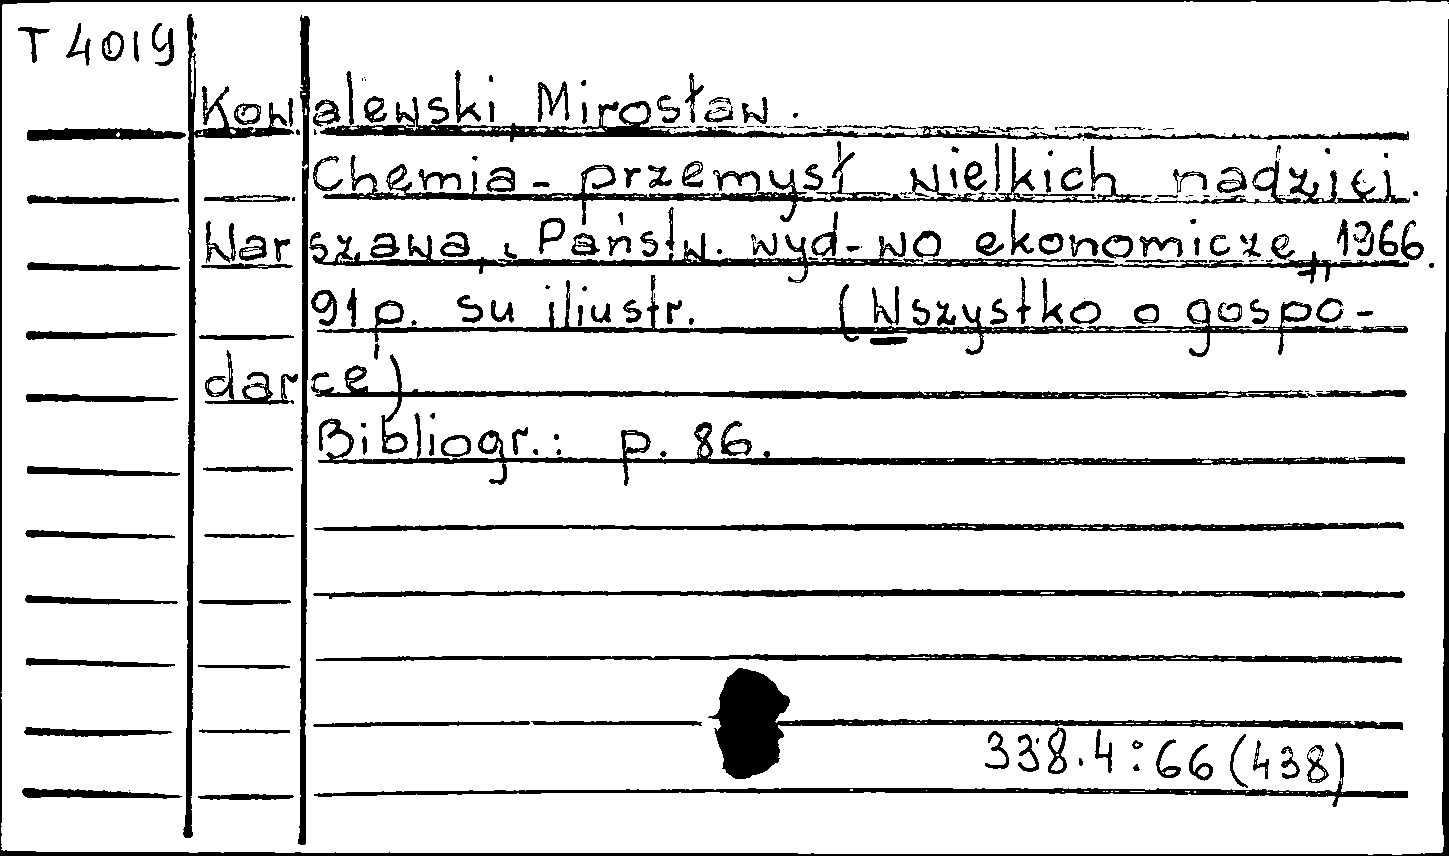 T 4019
Kowalewski, Mirosław.
Chemia - przemysł wielkich nadziei.
Warszawa, Państw. wyd-wo ekonomicze, 1966.
91 p. su iliustr. (Wszystko o gospo-
darce).
Bibliogr.: p. 86.
338.4:66(438)